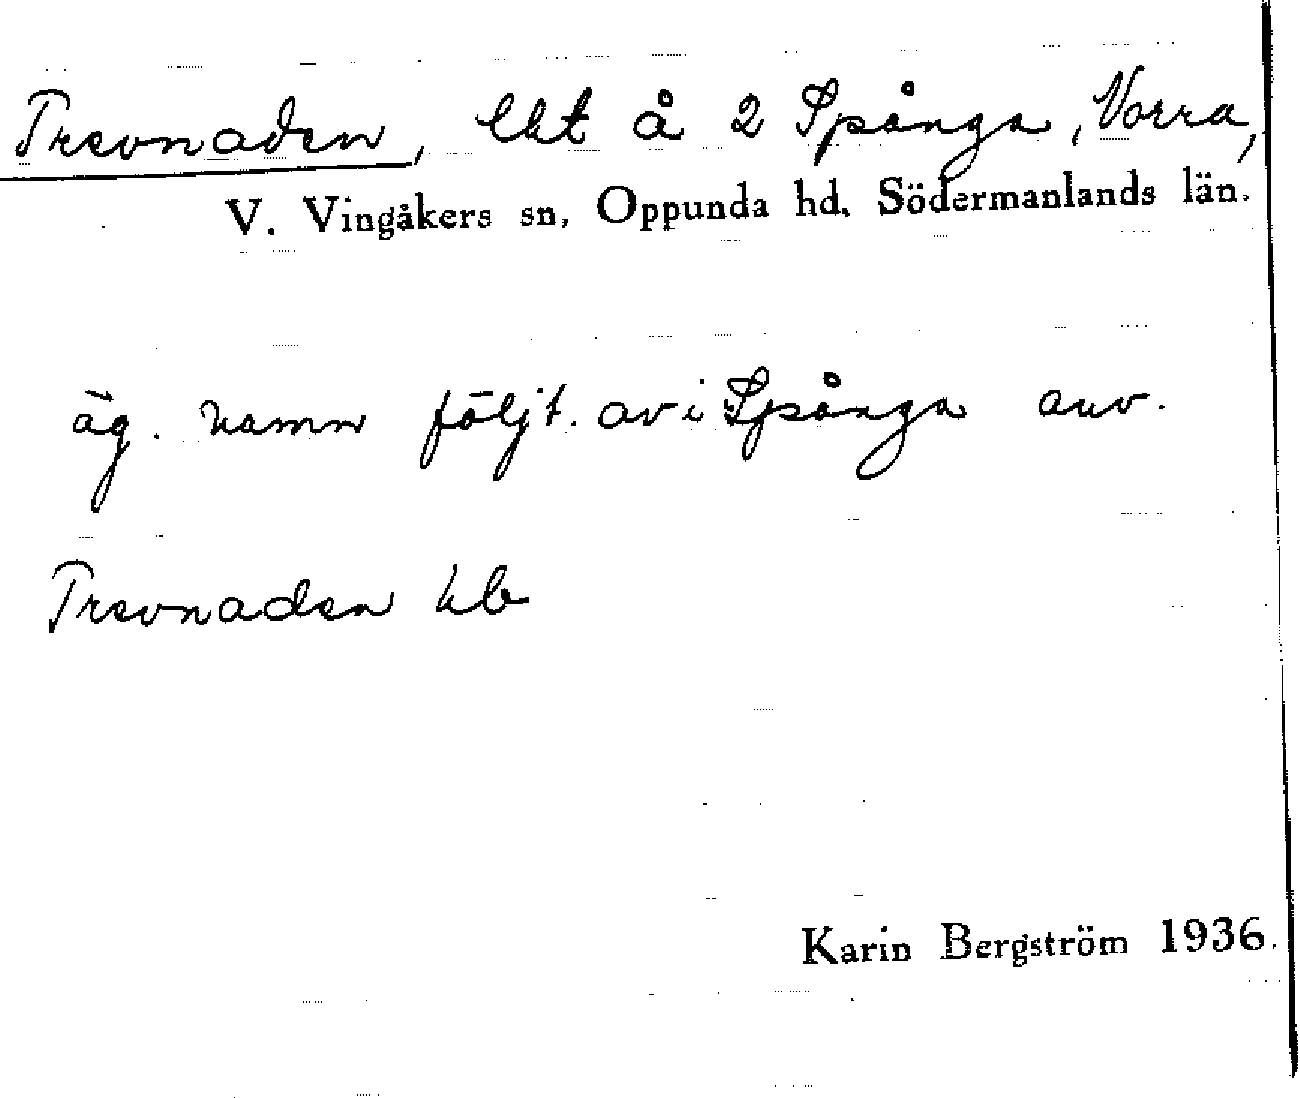 Trevnaden, lht å 2 Spånga, Norra,
V. Vingåkers sn, Oppunda hd, Södermanlands län.
äg. namn följt. av i Spånga anv.
Trevnaden kb
Karin Bergström 1936.